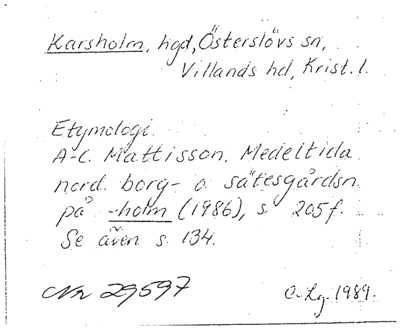 Karsholm, hgd, Österslövs sn,
Villands hd, Krist. l.
Etymologi.
A-C. Mattisson, Medeltida
nord. borg- o. sätesgårdsn.
på -holm (1986), s. 205f.
Se även s. 134.
Nr 29597
C. Lg. 1989.